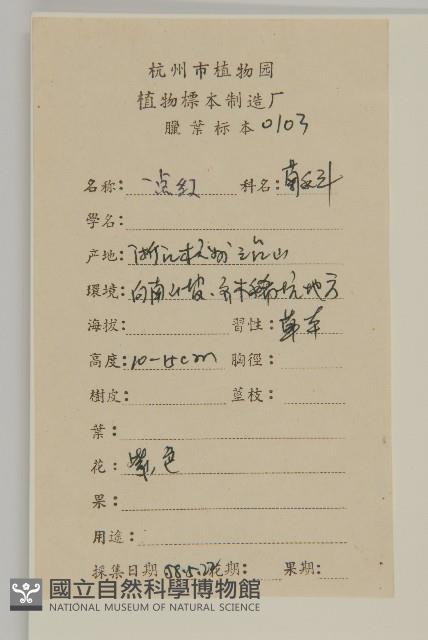 杭州市植物园
植物標本制造厂
臘葉标本 0103
名称: 一点红 科名:
學名:
产地: 浙江杭州 山
環境: 向南山坡. 地方
海拔: 習性: 草本
高度: 10-15cm 胸徑:
樹皮: 莖枝:
葉:
花: 紫色
果:
用途:
採集日期 58.5. 花期: 果期:
國立自然科學博物館
NATIONAL MUSEUM OF NATURAL SCIENCE